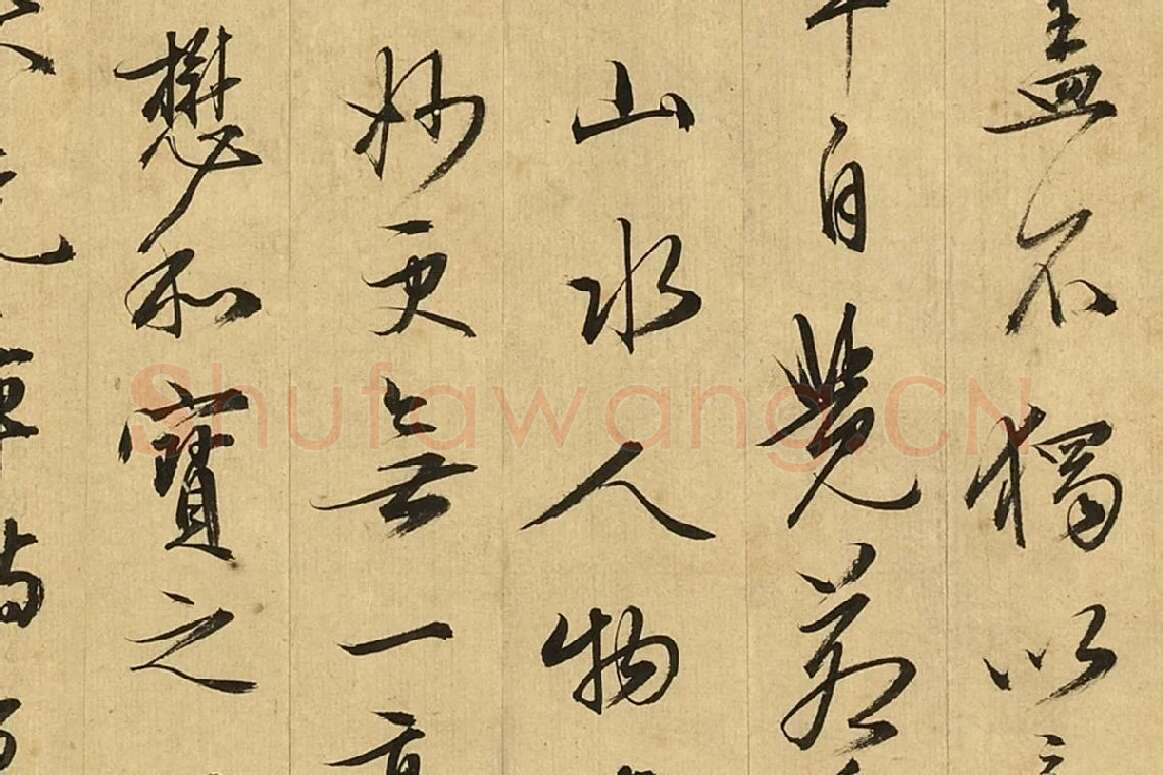 盖不獨以
自覺前
山水人物
妙更無一
懋和寶之
Shufawang.CN